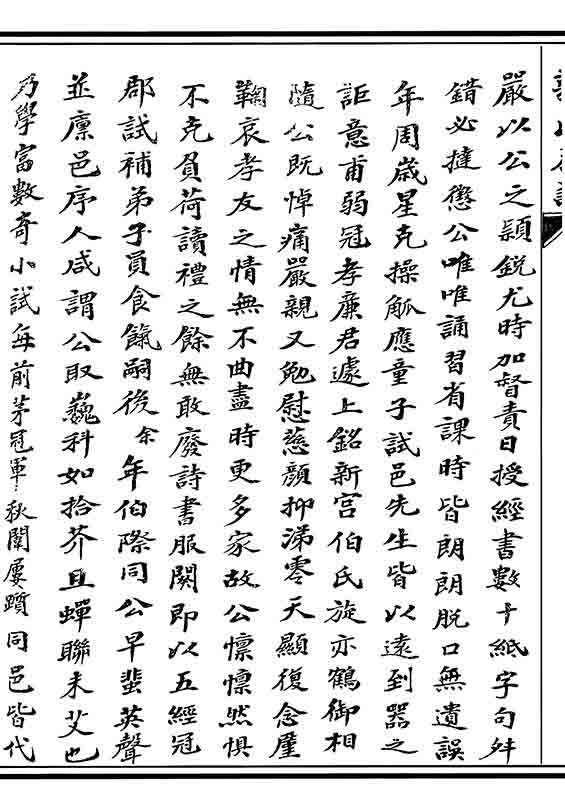 嚴以公之穎銳尤時加督責日授經書數十紙字句舛
錯必撻懲公唯唯誦習省課時皆朗朗脫口無遺誤
年周歲星克操觚應童子試邑先生皆以遠到器之
詎意甫弱冠孝廉君遽上銘新宮伯氏旋亦鶴御相
隨公既悼痛嚴親又勉慰慈顏抑涕零天顯復念屢
鞠哀孝友之情無不曲盡時更多家故公懍懍然惧
不克負荷讀禮之餘無敢廢詩書服闋即以五經冠
郡試補弟子員食餼嗣後余年伯際同公早蜚英聲
並廩邑序人咸謂公取巍科如拾芥且蟬聯未艾也
乃學富數奇小試每前茅冠軍秋闈屢躓同邑皆代